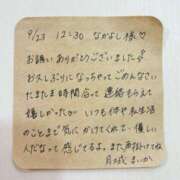 9/23 12:30 なかよし様♡
お誘いありがとうございました
お久しぶりになっちゃってごめんなさい
たまたま時間合って連絡もらえて
嬉しかったか いつも体や私生活
のことまで気にかけてくれて…優しい
人だなって感じてるよ。また声掛けてね
まいか